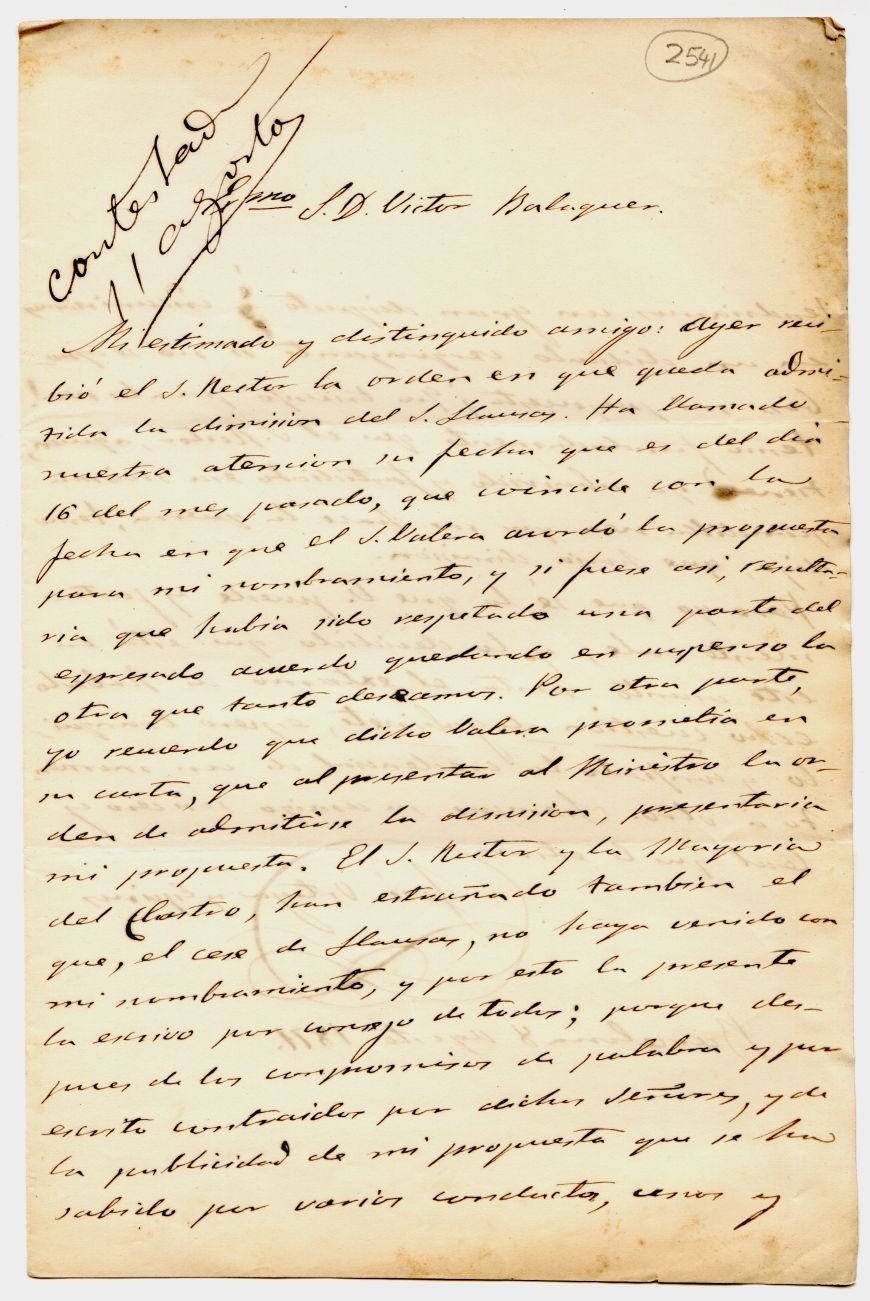 2541
contestada
11 agosto
Exmo S. D. Victor Balaguer.
Mi estimado y distinguido amigo: Ayer reci-
bió el S. Rector la orden en que queda admi-
tida la dimision del S. Llausas. Ha llamado
nuestra atencion su fecha que es del dia
16 del mes pasado, que coincide con la
fecha en que el S. Valera acordó la propuesta
para mi nombramiento, y si fuese asi, resulta-
ria que habia sido respetado una parte del
espresado acuerdo quedando en suspenso la
otra que tanto deseamos. Por otra parte,
yo recuerdo que dicho Valera prometia en
su carta, que al presentar al Ministro la or-
den de admitirse la dimision, presentaria
mi propuesta. El S. Rector y la Mayoria
del Clastro, han estrañado tambien el
que, el cese de Llausas, no haya venido con
mi nombramiento, y por esto la presente
la escrivo por consejo de todos; porque des-
pues de los compromisos de palabra y por
escrito contraidos por dichos Señores, y de
la publicidad de mi propuesta que se ha
sabido por varios conductos, unos y